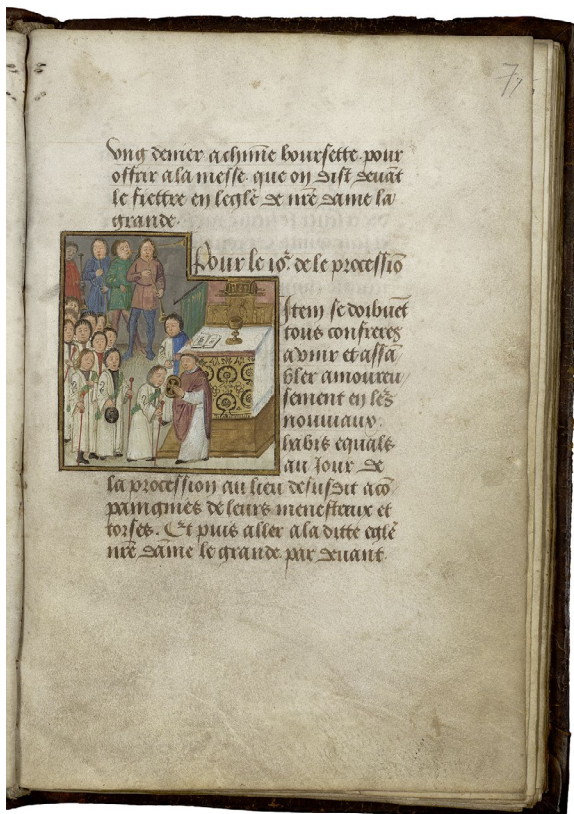 7
ung denier a chūne boursette pour
offrir a la messe que on dist deuāt
le fiertre en legl̄e de nr̄e dame la
grande.
Pour le io͛. de le processiō
Item se doibuēt
tous confreres
a venir et assā
bler amoureu
sement en les̄
nouuiaux
habis equals
au iour de
la procession au lieu desusdit acō
paingnies de leurs menestreux et
torses. Et puis aller a la ditte egl̄e
nr̄e dame le grande par deuant